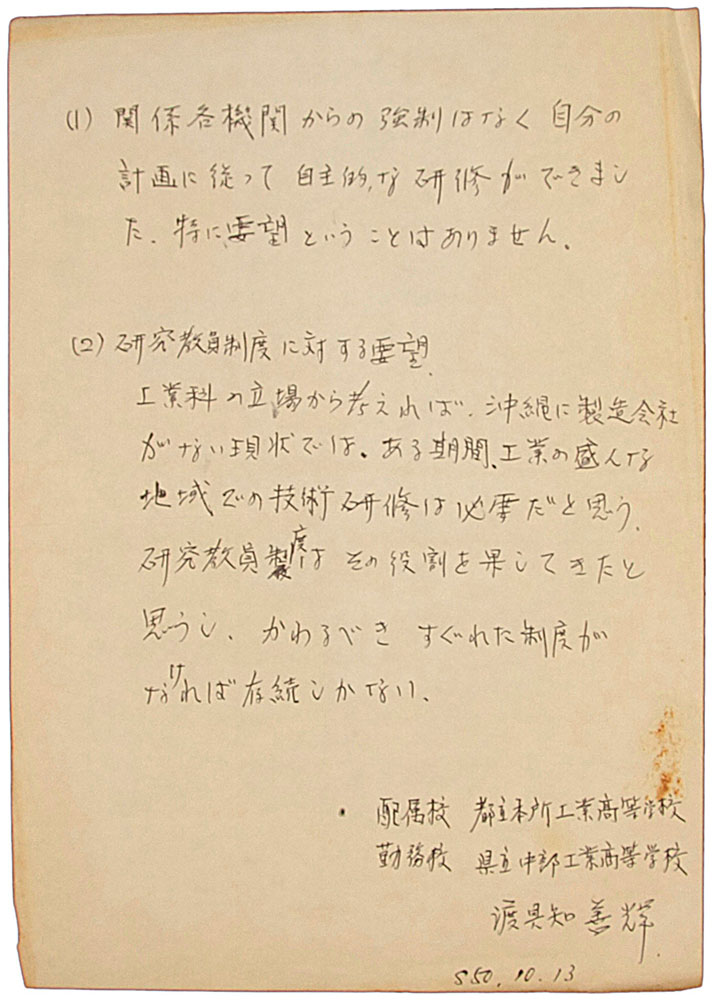 (1) 関係各機関からの強制はなく自分の
計画に従って自主的な研修ができまし
た、特に要望ということはありません。
(2) 研究教員制度に対する要望
工業科の立場から考えれば、沖縄に製造会社
がない現状では、ある期間、工業の盛んな
地域での技術研修は必要だと思う、
研究教員制度はその役割を果してきたと
思うし、かわるべきすぐれた制度が
なければ存続しかない、
配属校 都立本所工業高等学校
勤務校 県立中部工業高等学校
渡具知善輝
S50.10.13